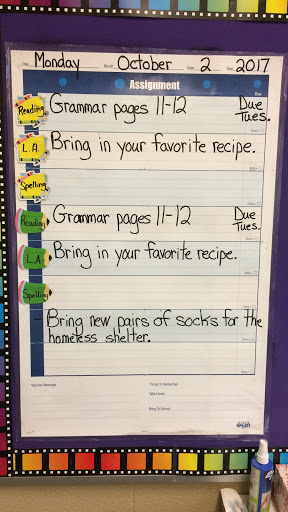 Day Monday Month October Date 2 Year 2017
Assignment
Due
Reading Grammar pages 11-12 Due
Tues.
L.A. Bring in your favorite recipe.
Spelling
Reading Grammar pages 11-12 Due
Tues.
L.A. Bring in your favorite recipe.
Spelling
Bring new pairs of socks for the
homeless shelter.
Teacher Message
Things To Remember
Take Home:
Bring To School: